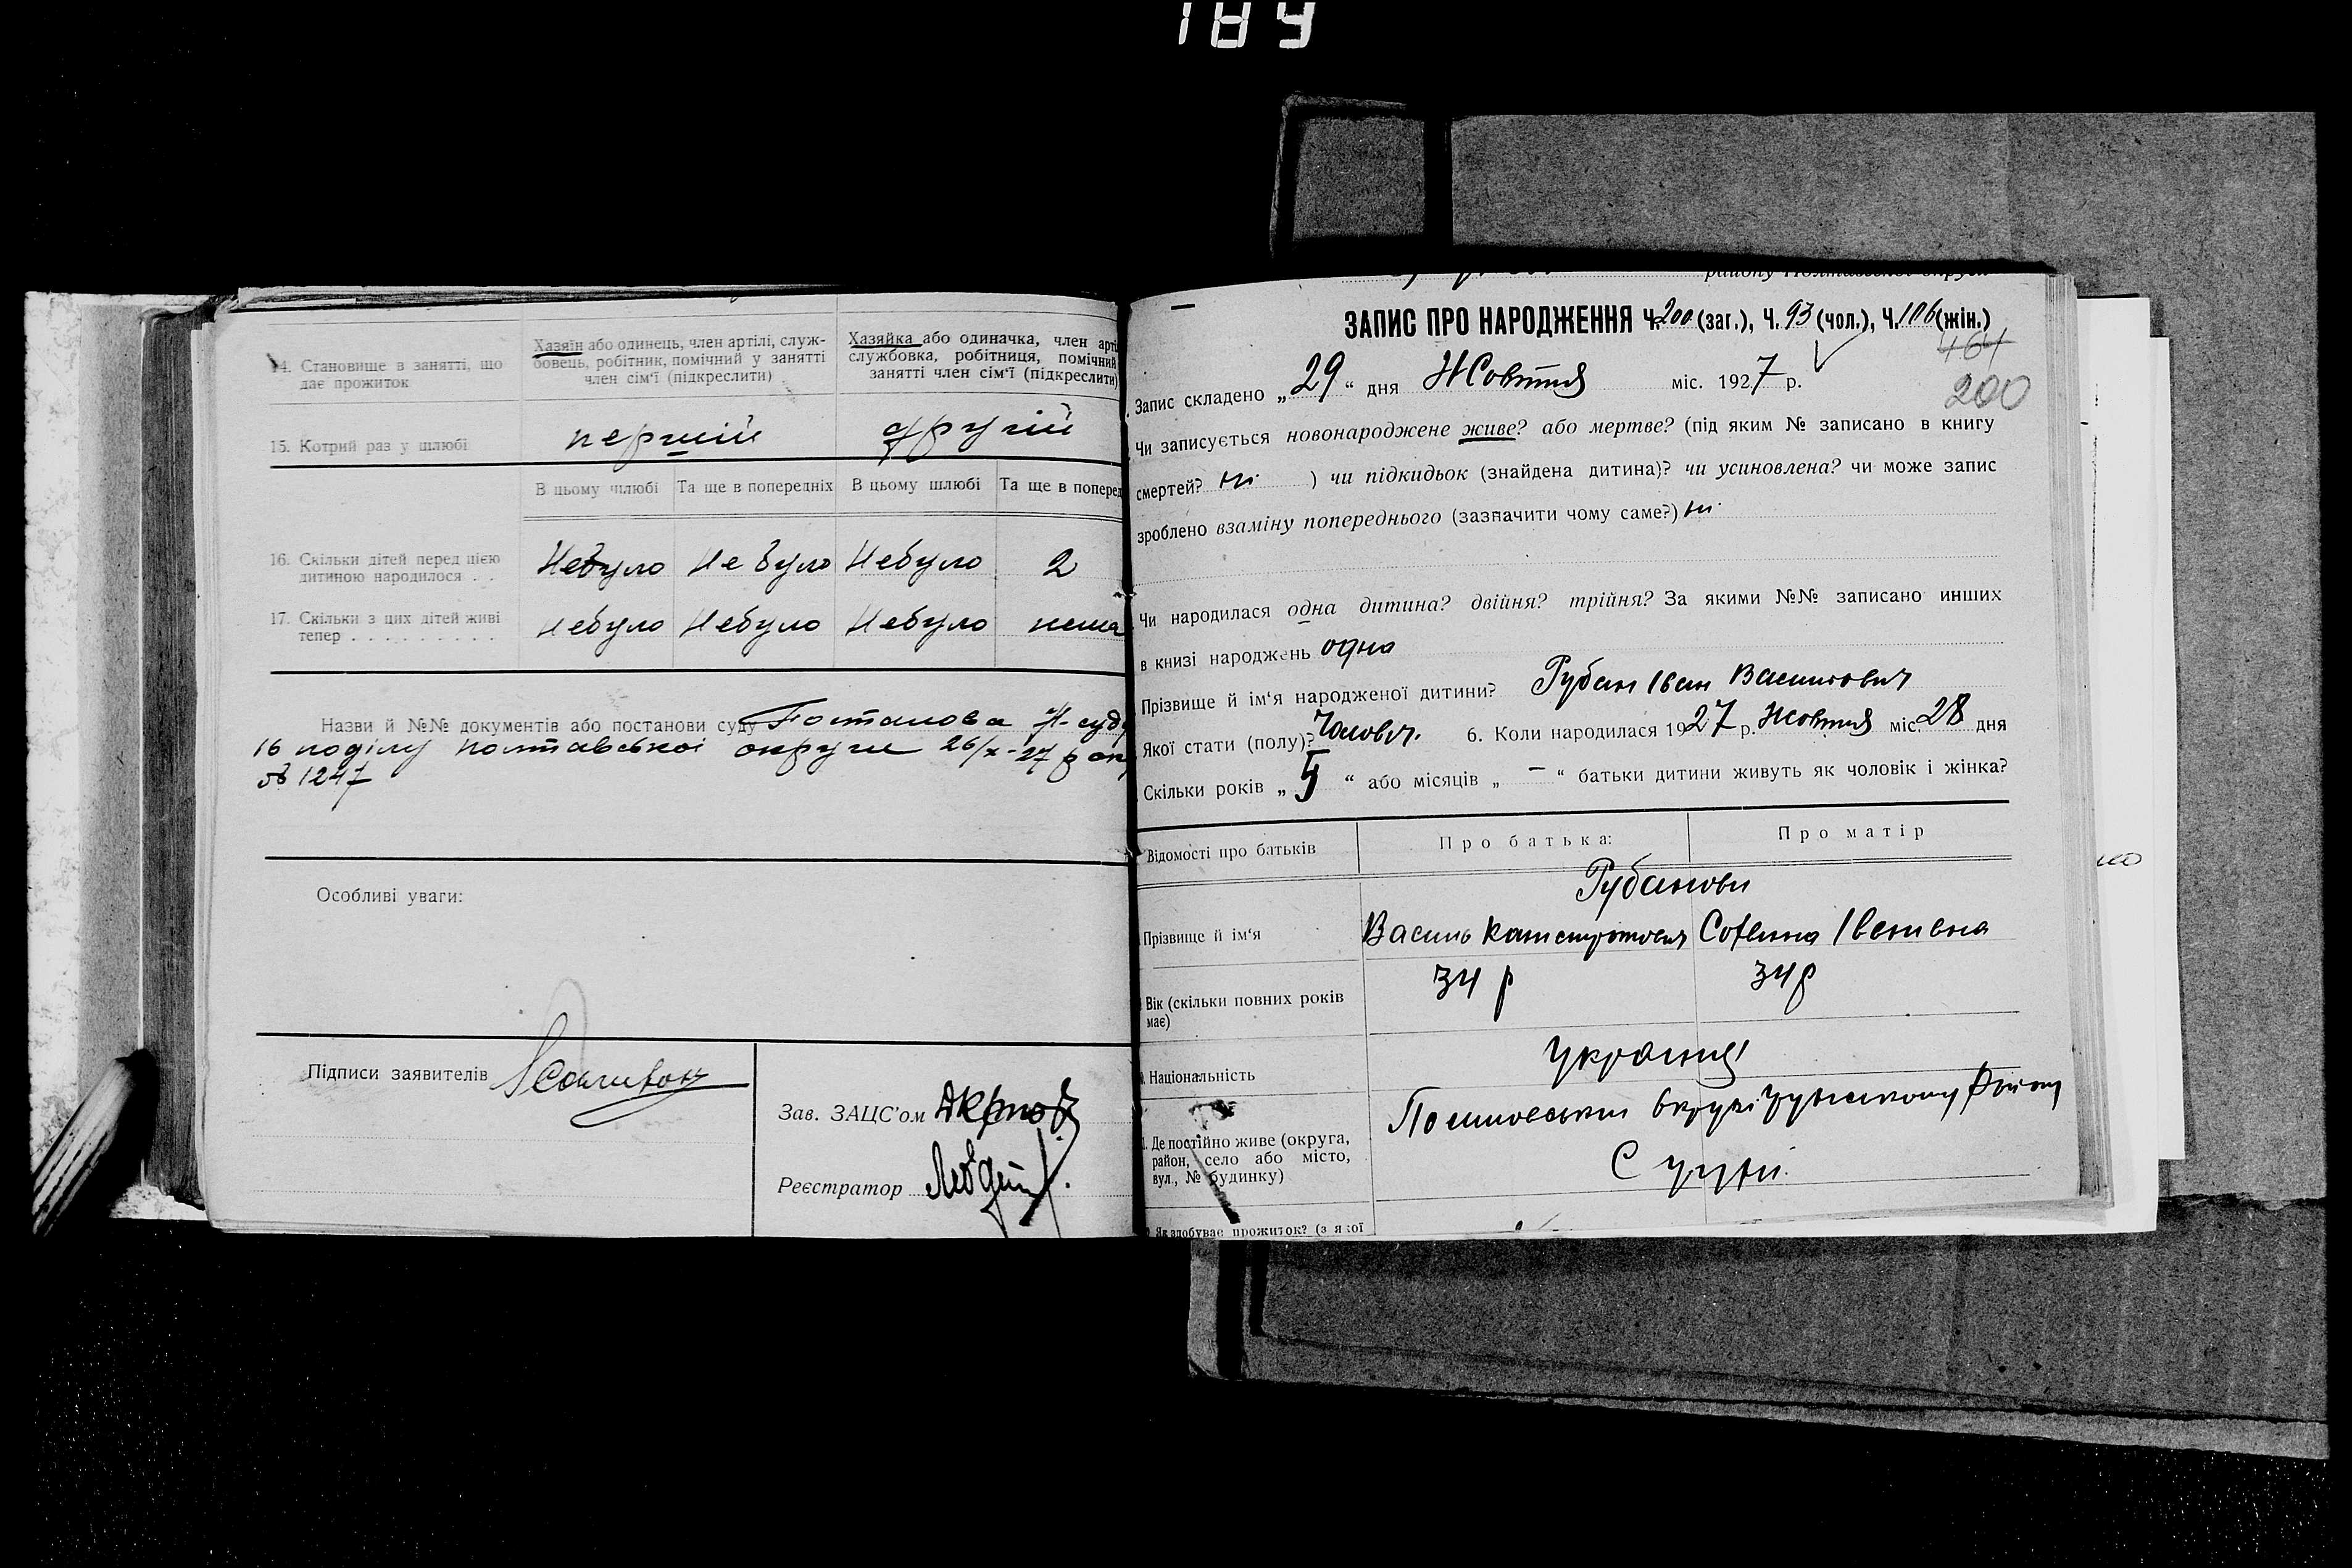 189
14. Становище в занятті, що дає прожиток
Хазяїн або одинець, член артілі, служ-
бовець, робітник, помічний у занятті
член сім'ї (підкреслити)
Хазяйка або одиначка, член арті
службовка, робітниця, помічний
занятті член сім'ї (підкреслити)
15. Котрий раз у шлюбі
перший
другий
В цьому шлюбі Та ще в попередніх В цьому шлюбі Та ще в поперед
16. Скільки дітей перед цією
дитиною народилося . .
Небуло Не було Небуло 2
17. Скільки з цих дітей живі
тепер . . . . . . . . . .
небуло Небуло Небуло нема
Назви й №№ документів або постанови суду Постанова Н-суду
16 поділу полтавської округи 26/х-27 р
№ 1247
Особливі уваги:
Підписи заявителів
Зав. ЗАЦС'ом
Реєстратор
району Полтавської округи
ЗАПИС ПРО НАРОДЖЕННЯ Ч. 200 (заг.), Ч. 93 (чол.), Ч. 106 (жін.)
464
200
Запис складено „ 29 “ дня Жовтня міс. 1927 р.
Чи записується новонароджене живе? або мертве? (під яким № записано в книгу
смертей? ні ) чи підкидьок (знайдена дитина)? чи усиновлена? чи може запис
зроблено взаміну попереднього (зазначити чому саме?) ні
Чи народилася одна дитина? двійня? трійня? За якими №№ записано инших
в книзі народжень одна
Прізвище й ім'я народженої дитини? Рубан Іван Васильович
Якої стати (полу)? Чолович. 6. Коли народилася 1927 р. Жовтня міс. 28 дня
Скільки років „ “ або місяців „ — “ батьки дитини живуть як чоловік і жінка?
Відомості про батьків
Про батька:
Про матір
Рубанови
Прізвище й ім'я
Василь Калістратович
Іванівна
Вік (скільки повних років
має)
34 р
34 р
Національність
Україниці
Де постійно живе (округа,
район, село або місто,
вул., № будинку)
Полтавськи округі району
С
Як здобуває прожиток? (з якої